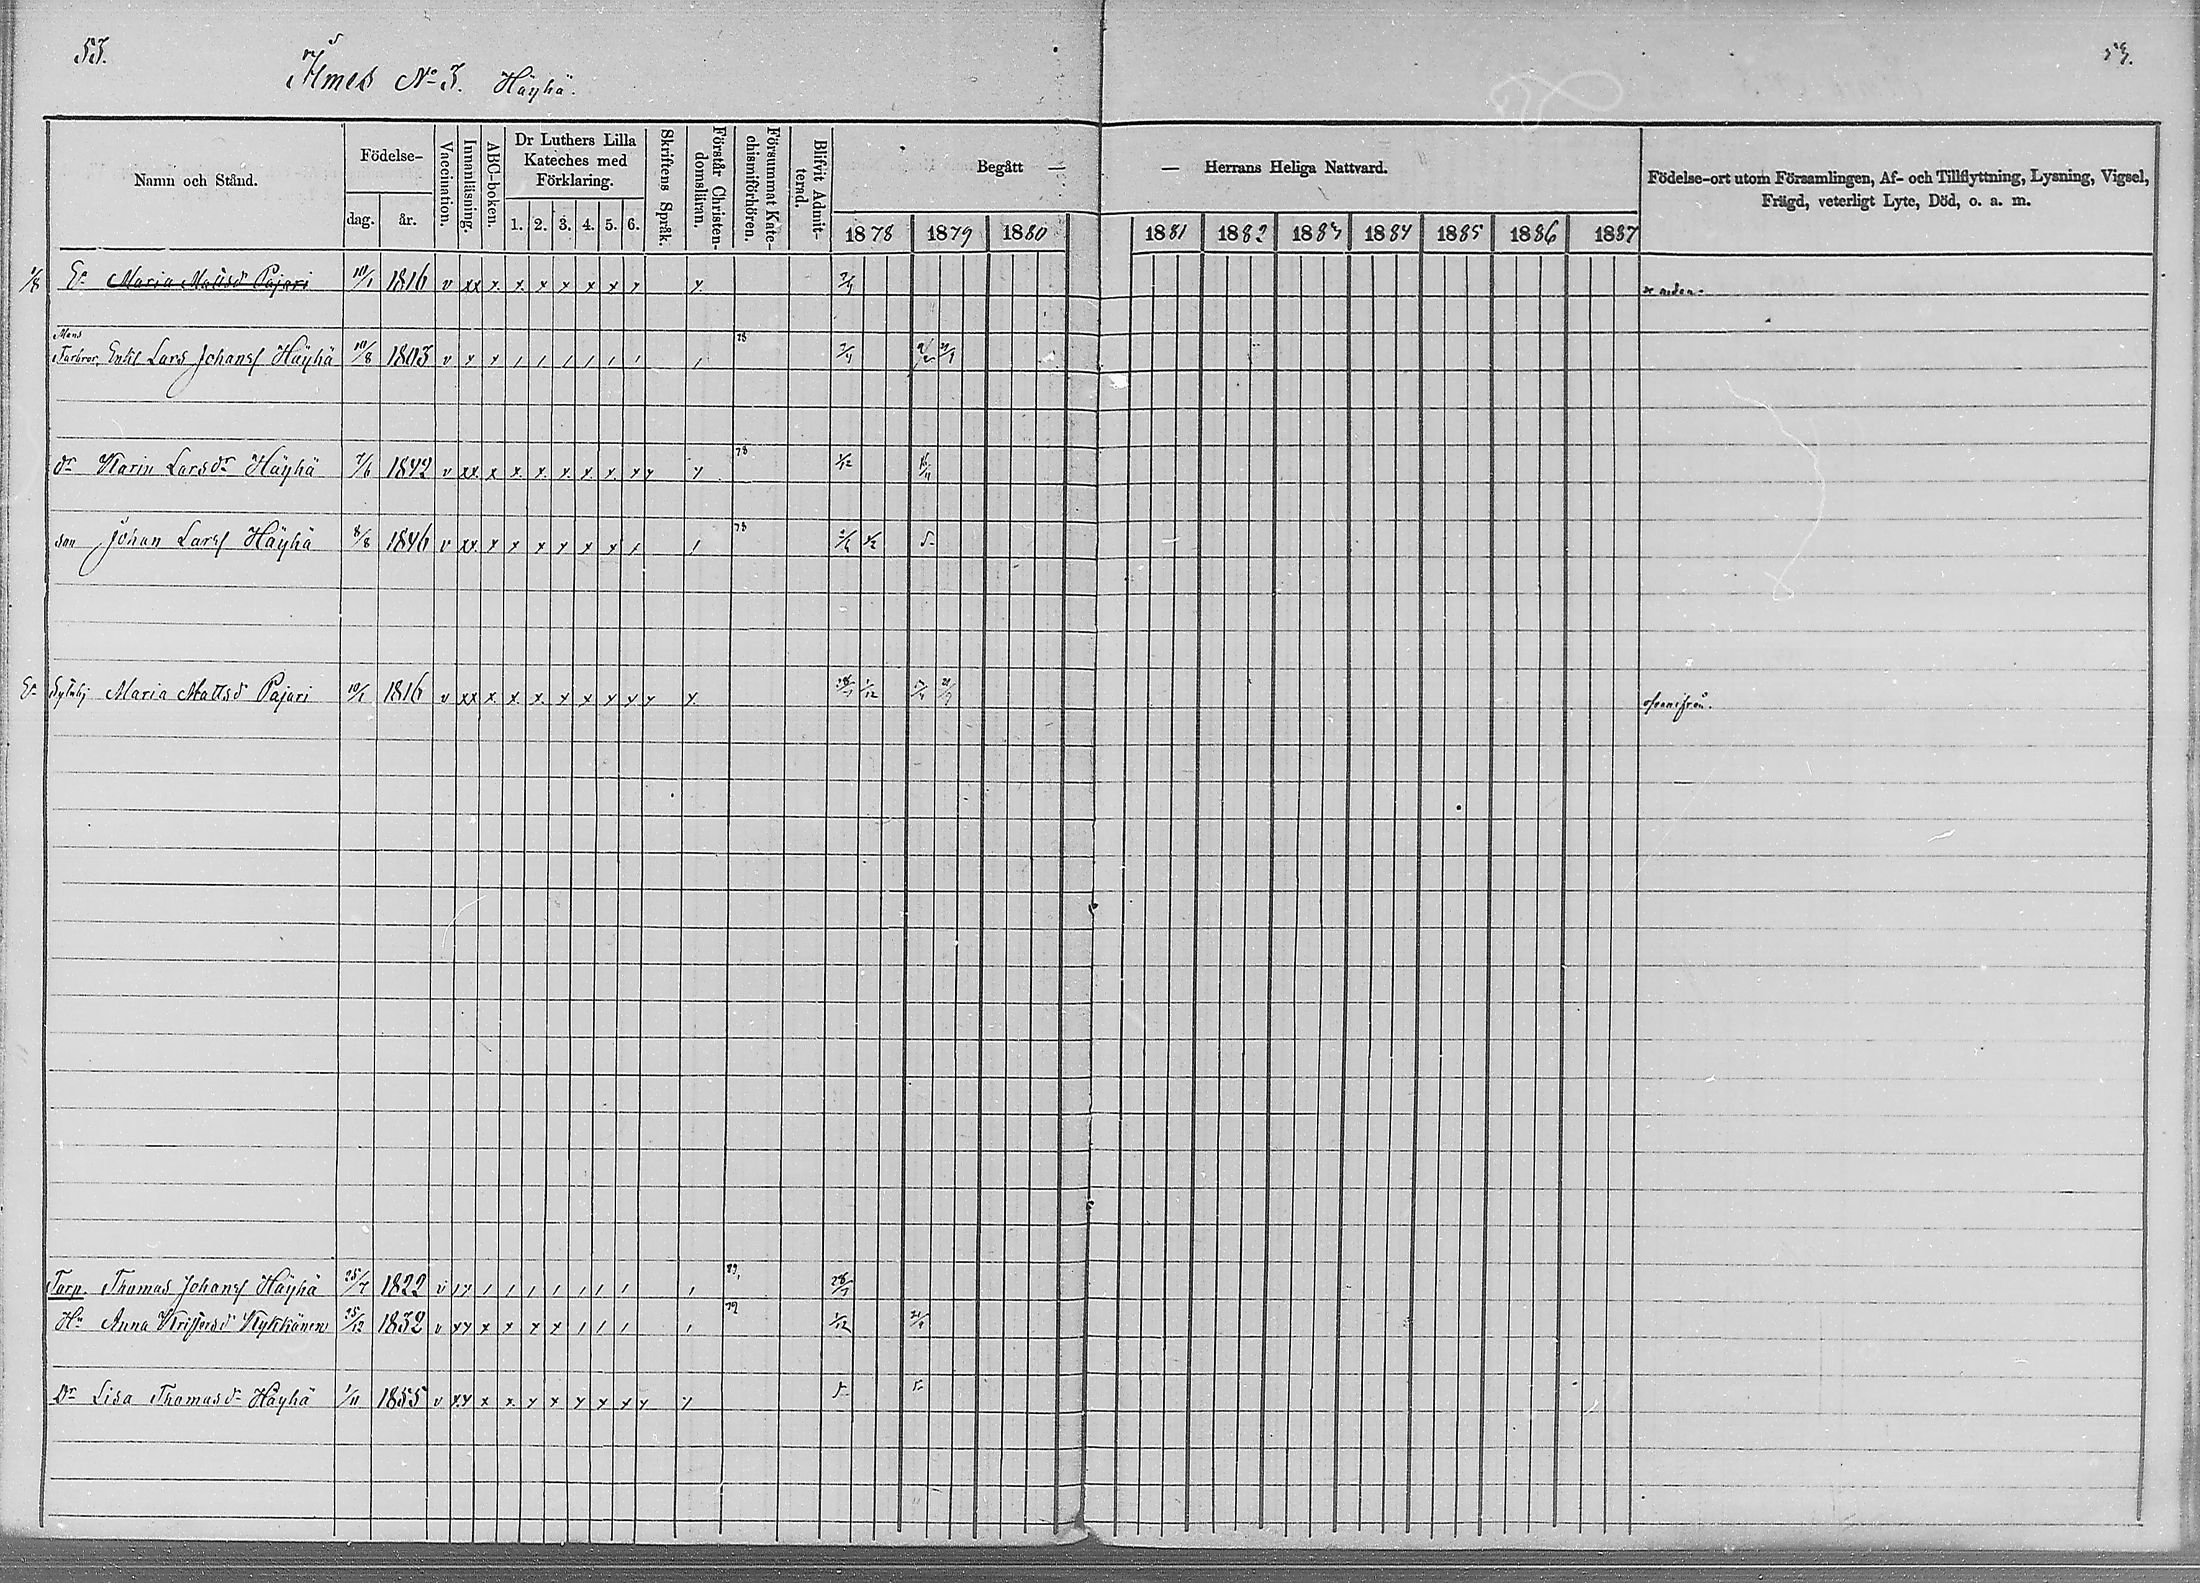 53.
53.
Ilmes No 3. Häyhä.
Namn och Stånd.
Födelse-
dag. år.
Vaccination.
Innanläsning.
ABC-boken.
Dr Luthers Lilla
Kateches med
Förklaring.
1. 2. 3. 4. 5. 6.
Skriftens Språk.
Förstår Christen-
domsläran.
Försummat Kate-
chismiförhören.
Blifvit Admit-
terad.
Begått — — Herrans Heliga Nattvard.
1878 1879 1880 1881 1882 1883 1884 1885 1886 1887
Födelse-ort utom Församlingen, Af- och Tillflyttning, Lysning, Vigsel,
Frägd, veterligt Lyte, Död, o. a. m.
Ea Maria Mattsdr Pajari 10/1 1816 v xx x x x x x x x x
se nedan.
Mans
Farbror, Enkl Lars Johansf Häyhä 10/8 1803 v x x / / / / / / / 78
dr Karin Larsdr Häyhä 7/6 1842 v xx x x x x x x x x x 78 1/12
son Johan Larsf Häyhä 8/8 1846 v xx x x x x x x x / 78
Ea Maria Mattsdr Pajari 10/1 1816 v xx x x x x x x x x x
ofvanifrån.
Torp. Thomas Johansf Häyhä 25/7 1822 v
Hu Anna Kristersdr Kykkänen 25/12 1832 v xx x x x x / / / / 79 1/12
Dr Lisa Thomasdr Häyhä 1/11 1855 v xx x x x x x x x x x